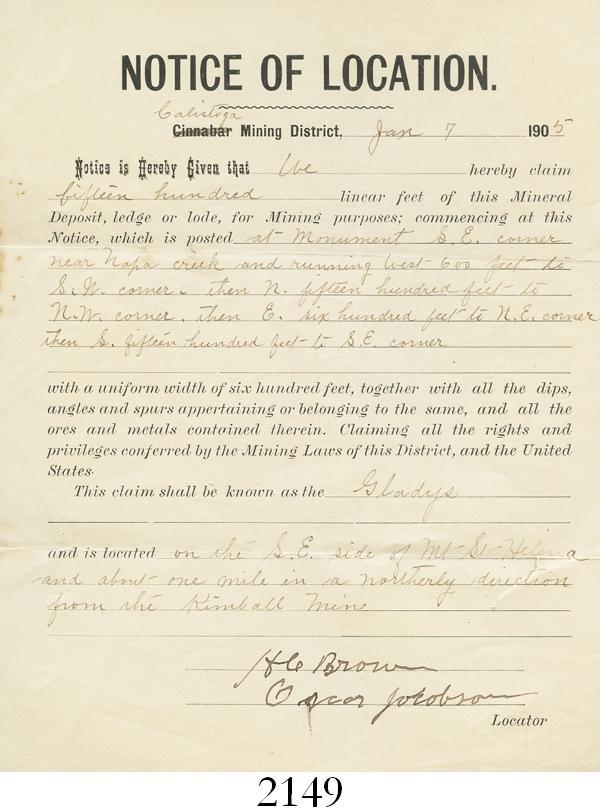 NOTICE OF LOCATION.
Calistoga
Cinnabar Mining District, Jan 7 1905
Notice is Hereby Given that We hereby claim
fifteen hundred linear feet of this Mineral
Deposit, ledge or lode, for Mining purposes; commencing at this
Notice, which is posted at Monument S.E. corner
near Napa creek and running West 600 feet to
S.W. corner. then N. fifteen hundred feet to
N.W. corner. then E. six hundred feet to N.E. corner
then S. fifteen hundred feet to S.E. corner
with a uniform width of six hundred feet, together with all the dips,
angles and spurs appertaining or belonging to the same, and all the
ores and metals contained therein. Claiming all the rights and
privileges conferred by the Mining Laws of this District, and the United
States.
This claim shall be known as the Gladys
and is located on the S.E. side of Mt St Helena
and about one mile in a northerly direction
from the Kimball Mine
H C Brown
Oscar Jacobson
Locator
2149